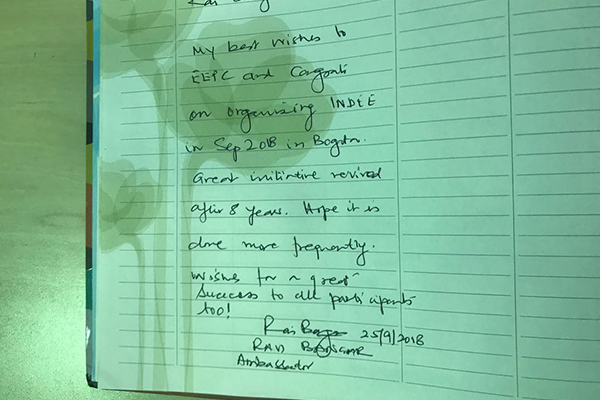 My best wishes to
EEPC and Congrats
on organizing INDEE
in Sep 2018 in Bogota.
Great initiative revived
after 8 years. Hope it is
done more frequently.
Wishes for a great
success to all participants
too!
25/9/2018
RAVI BANGAR
Ambassador